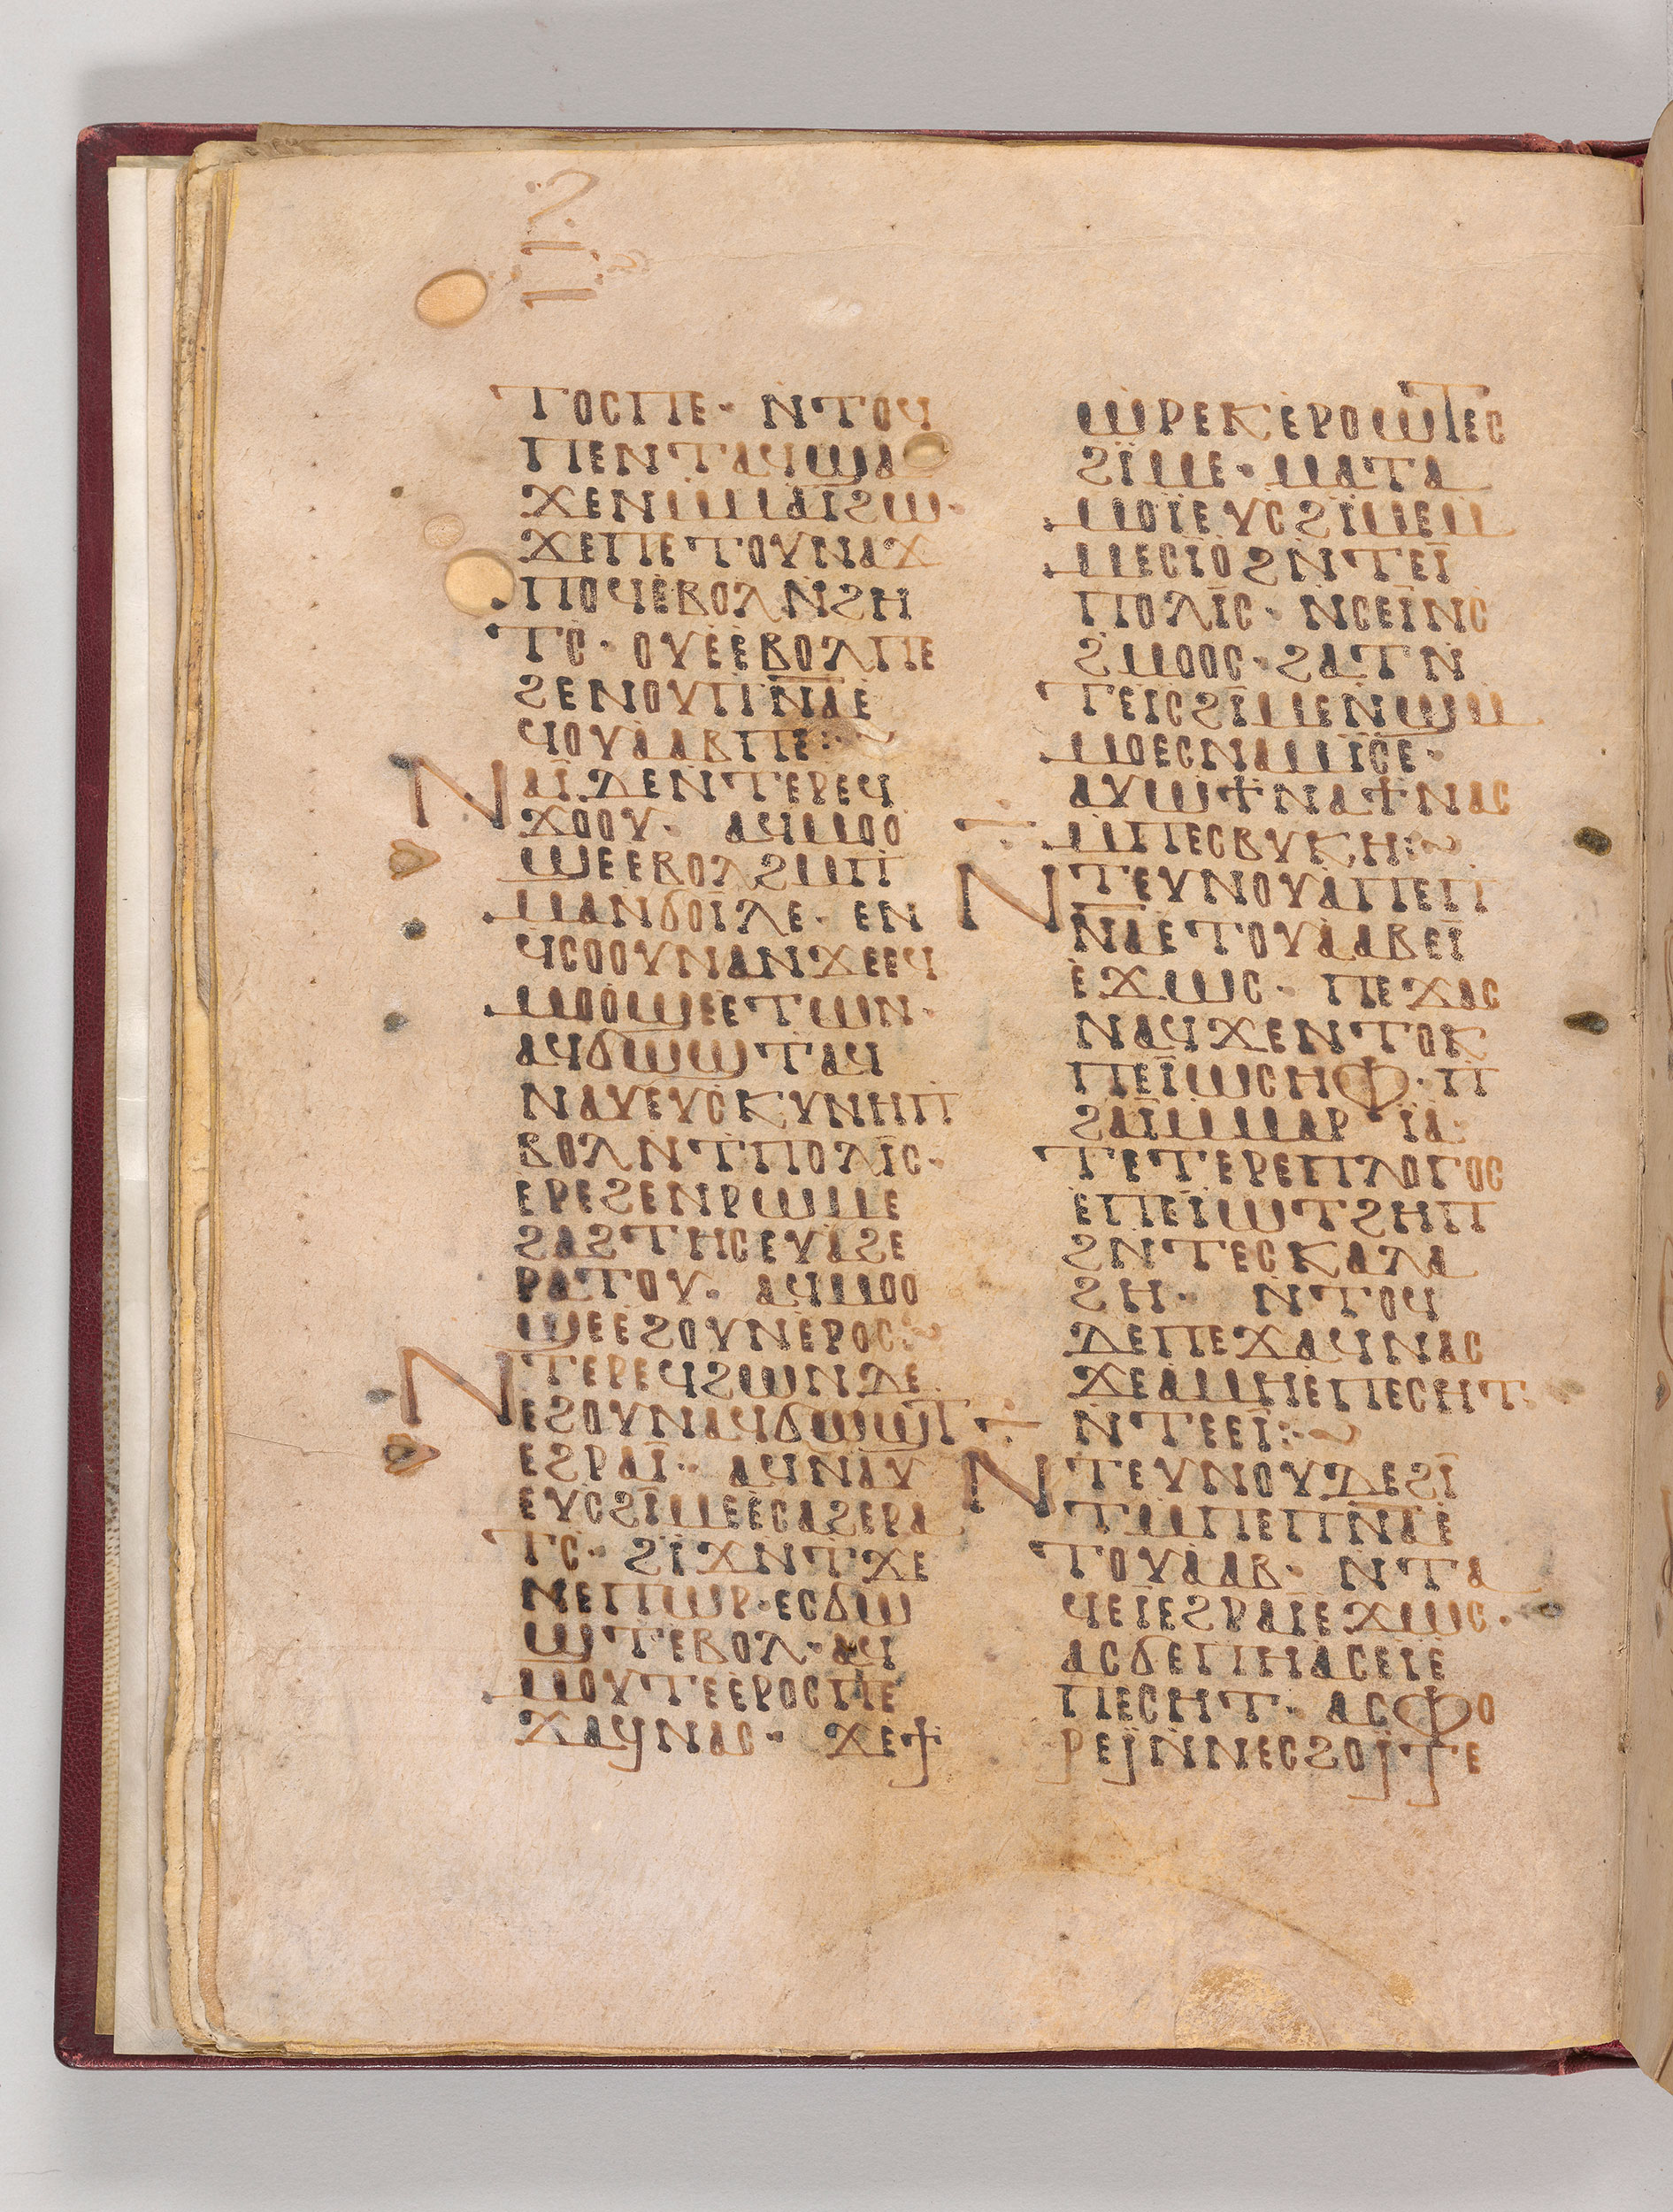 ⲧⲟⲥⲡⲉ· ⲛ̀ⲧⲟϥ
ⲡⲉⲛⲧⲁϥϣⲁ
ϫⲉⲛⲙ̀ⲙⲁⲓ̈ϩⲱ·
ϫⲉⲡⲉⲧⲟⲩⲛⲁϫ
ⲡⲟϥⲉ̀ⲃⲟⲗⲛ̀ϩⲏ
ⲧⲥ̀· ⲟⲩⲉ̀ⲉ̀ⲃⲟⲗⲡⲉ
ϩⲉⲛⲟⲩⲡ̅ⲛ̅ⲁ̅ⲉ̀
ϥⲟⲩⲁ̀ⲁⲃⲡⲉ:
ⲛⲁⲓ̈ ⲇⲉⲛ̀ⲧⲉⲣⲉϥ
ϫⲟⲟⲩ· ⲁϥⲙⲟⲟ
ϣⲉⲉⲃⲟⲗϩⲙⲡ̀
ⲙⲁⲛϭⲟⲓⲗⲉ· ⲉⲛ
ϥⲥⲟⲟⲩⲛⲁⲛϫⲉⲉϥ
ⲙⲟⲟϣⲉⲉⲧⲱⲛ·
ⲁϥϭⲱϣⲧⲁϥ
ⲛⲁⲩⲉ̀ⲩⲥⲕⲩⲛⲏⲡ̀
ⲃⲟⲗⲛ̀ⲧⲡⲟⲗⲓ̈ⲥ·
ⲉⲣⲉϩⲉⲛⲣⲱⲙⲉ
ϩⲁϩⲧⲏⲥⲉⲩⲁ̀ϩⲉ
ⲣⲁⲧⲟⲩ· ⲁϥⲙⲟⲟ
ϣⲉⲉ̀ϩⲟⲩⲛⲉ̀ⲣⲟⲥ:
ⲛⲧⲉⲣⲉϥϩⲱⲛⲇⲉ
ⲉϩⲟⲩⲛⲁϥϭⲱϣⲧ
ⲉϩⲣⲁⲓ̈· ⲁϥⲛⲁⲩ
ⲉⲩⲥϩⲓ̈ⲙⲉⲉ̀ⲥⲁϩⲉⲣⲁ
ⲧⲥ̀· ϩⲓ̈ϫⲛ̀ⲧϫⲉ
ⲛⲉⲡⲱⲣ·ⲉⲥϭⲱ
ϣⲧⲉⲃⲟⲗ·ⲁϥ
ⲙⲟⲩⲧⲉⲉ̀ⲣⲟⲥⲡⲉ
ϫⲁϥⲛⲁⲥ· ϫⲉϯ
ⲱ̀ⲣⲉⲕⲉ̀ⲣⲟⲱ̀ⲧⲉⲥ
ϩⲓ̈ⲙⲉ·ⲙⲁⲧⲁ
ⲙⲟⲓ̈ⲉⲩⲥϩⲓ̈ⲙⲉⲙ̀
ⲙⲉⲥⲓⲟ̀ϩⲛ̀ⲧⲉⲓ̈
ⲡⲟⲗⲓ̈ⲥ· ⲛ̀ⲥⲉⲓ̈ⲛⲥ̀
ϩⲙⲟⲟⲥ·ϩⲁⲧⲛ̀
ⲧⲉⲓⲥϩⲓ̈ⲙⲉⲛ̀ϣⲙ̀
ⲙⲟⲉⲥⲛⲁⲙⲓ̈ⲥⲉ·
ⲁⲩⲱϯⲛⲁϯⲛⲁⲥ
ⲙ̀ⲡⲉⲥⲃⲩⲕⲏ:
ⲛⲧⲉⲩⲛⲟⲩⲁ̀ⲡⲉⲡ̅
ⲛ̅ⲁ̅ⲉⲧⲟⲩⲁ̀ⲁⲃⲉⲓ̈
ⲉ̀ϫⲱⲥ· ⲡⲉϫⲁⲥ
ⲛⲁϥϫⲉⲛ̀ⲧⲟⲕ
ⲡⲉⲓ̈ⲱⲥⲏⲫ·ⲡ̀
ϩⲁⲓ̈ⲙ̀ⲙⲁⲣⲓ̈ⲁ·
ⲧⲉⲧⲉⲣⲉⲡⲗⲟⲅⲟⲥ
ⲉ̀ⲡⲉⲓ̈ⲱⲧϩⲏⲡ̀
ϩⲛ̀ⲧⲉⲥⲕⲁⲗⲁ
ϩⲏ· ⲛ̀ⲧⲟϥ
ⲇⲉⲡⲉϫⲁϥⲛⲁⲥ
ϫⲉⲁⲙⲏⲉⲡⲉⲥⲏⲧ·
ⲛ̀ⲧⲉⲉⲓ̈:
ⲛⲧⲉⲩⲛⲟⲩⲇⲉϩⲓ̈
ⲧⲙ̀ⲡⲉⲡ̅ⲛ̅ⲁ̅ⲉ̀
ⲧⲟⲩⲁ̀ⲁⲃ· ⲛ̀ⲧⲁ
ϥⲉⲓ̈ⲉϩⲣⲁⲓ̈ⲉϫⲱⲥ·
ⲁⲥϭⲉⲡⲏⲁⲥⲉⲓⲉ̀
ⲡⲉⲥⲏⲧ· ⲁⲥⲫⲟ
ⲣⲉⲓ̈ⲛ̀ⲛⲉⲥϩⲟⲓ̈ⲧⲉ